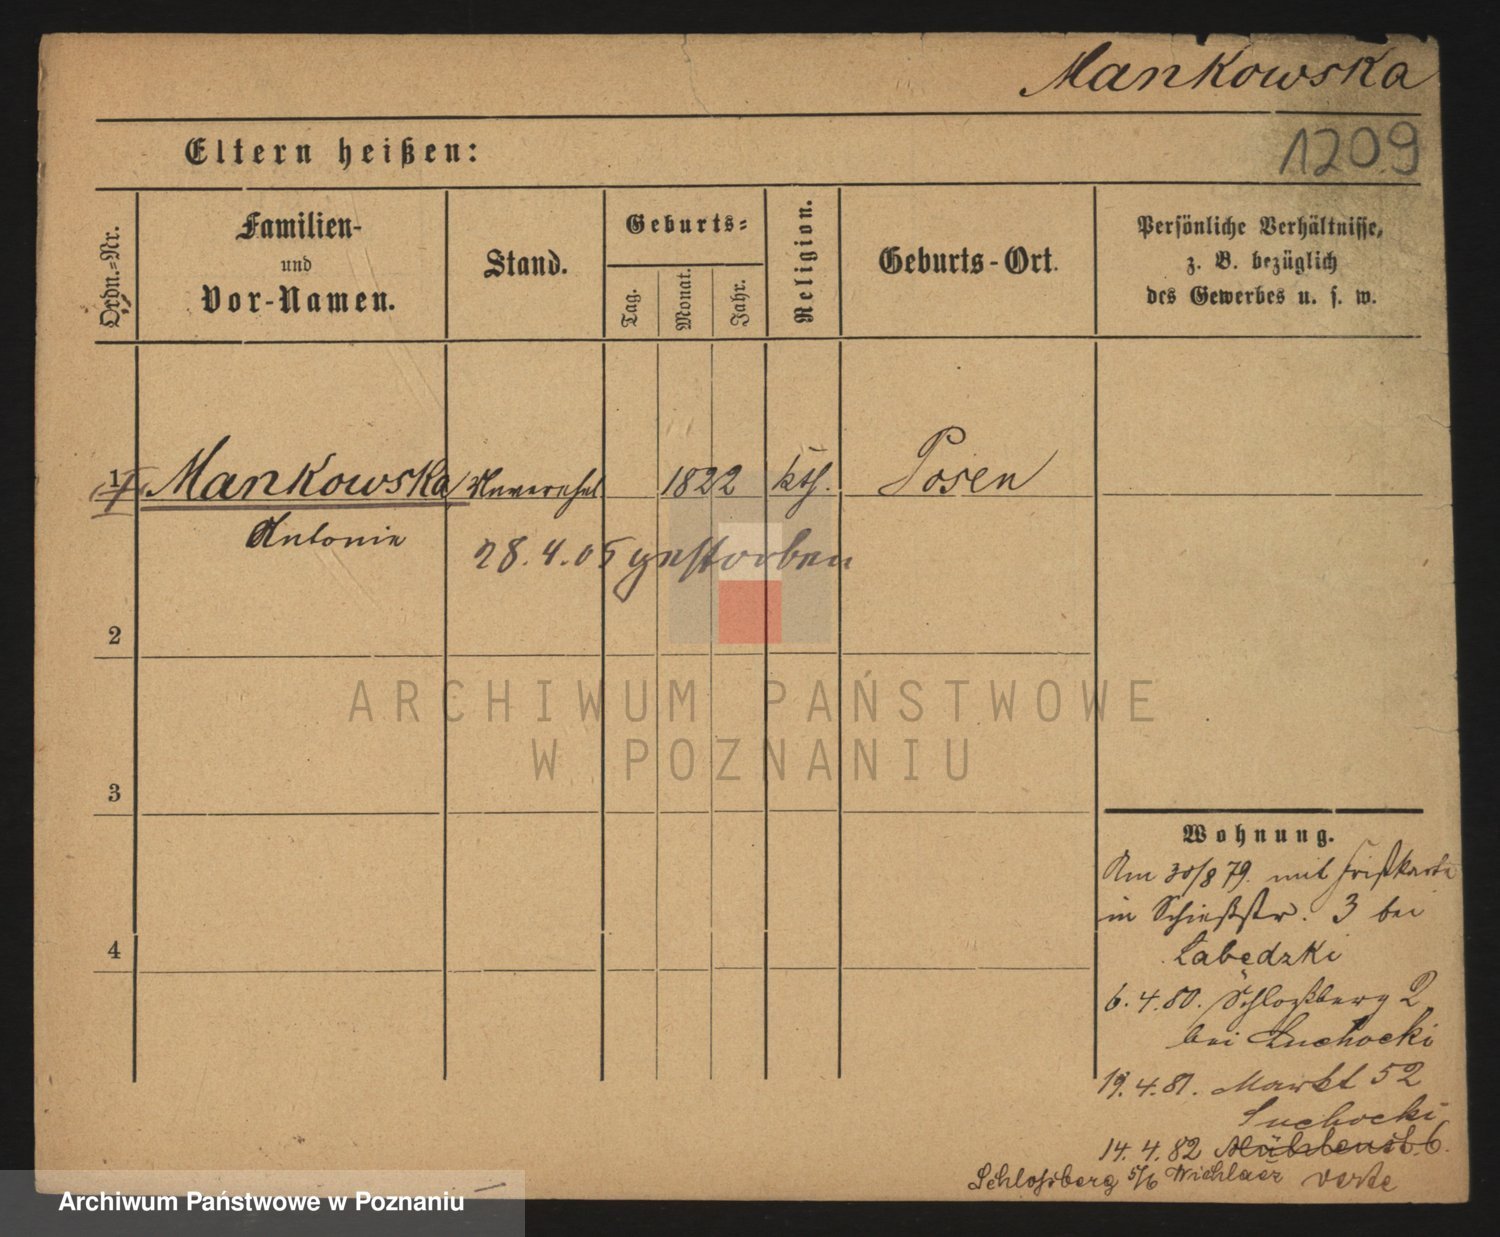 Mankowska
1209
Eltern heißen:
Ordn.=Nr.
Familien-
und
Vor-Namen.
Stand.
Geburts=
Tag.
Monat.
Jahr.
Religion.
Geburts-Ort.
Persönliche Verhältnisse,
z. B. bezüglich
des Gewerbes u. s. w.
1 Mankowska Unverehel 1822 kth. Posen
Antonie
28.4.05 gestorben
2
3
4
ARCHIWUM PAŃSTWOWE
W POZNANIU
Wohnung.
Am 30/8 79. mit Fristkarte
in Schießstr. 3 bei
Łabędzki
6.4.80. Schloßberg 2
bei Suchocki
19.4.81. Markt 52
Suchocki
14.4.82 Mühlenstr. 6.
Schlossberg 5/6 verte
Archiwum Państwowe w Poznaniu